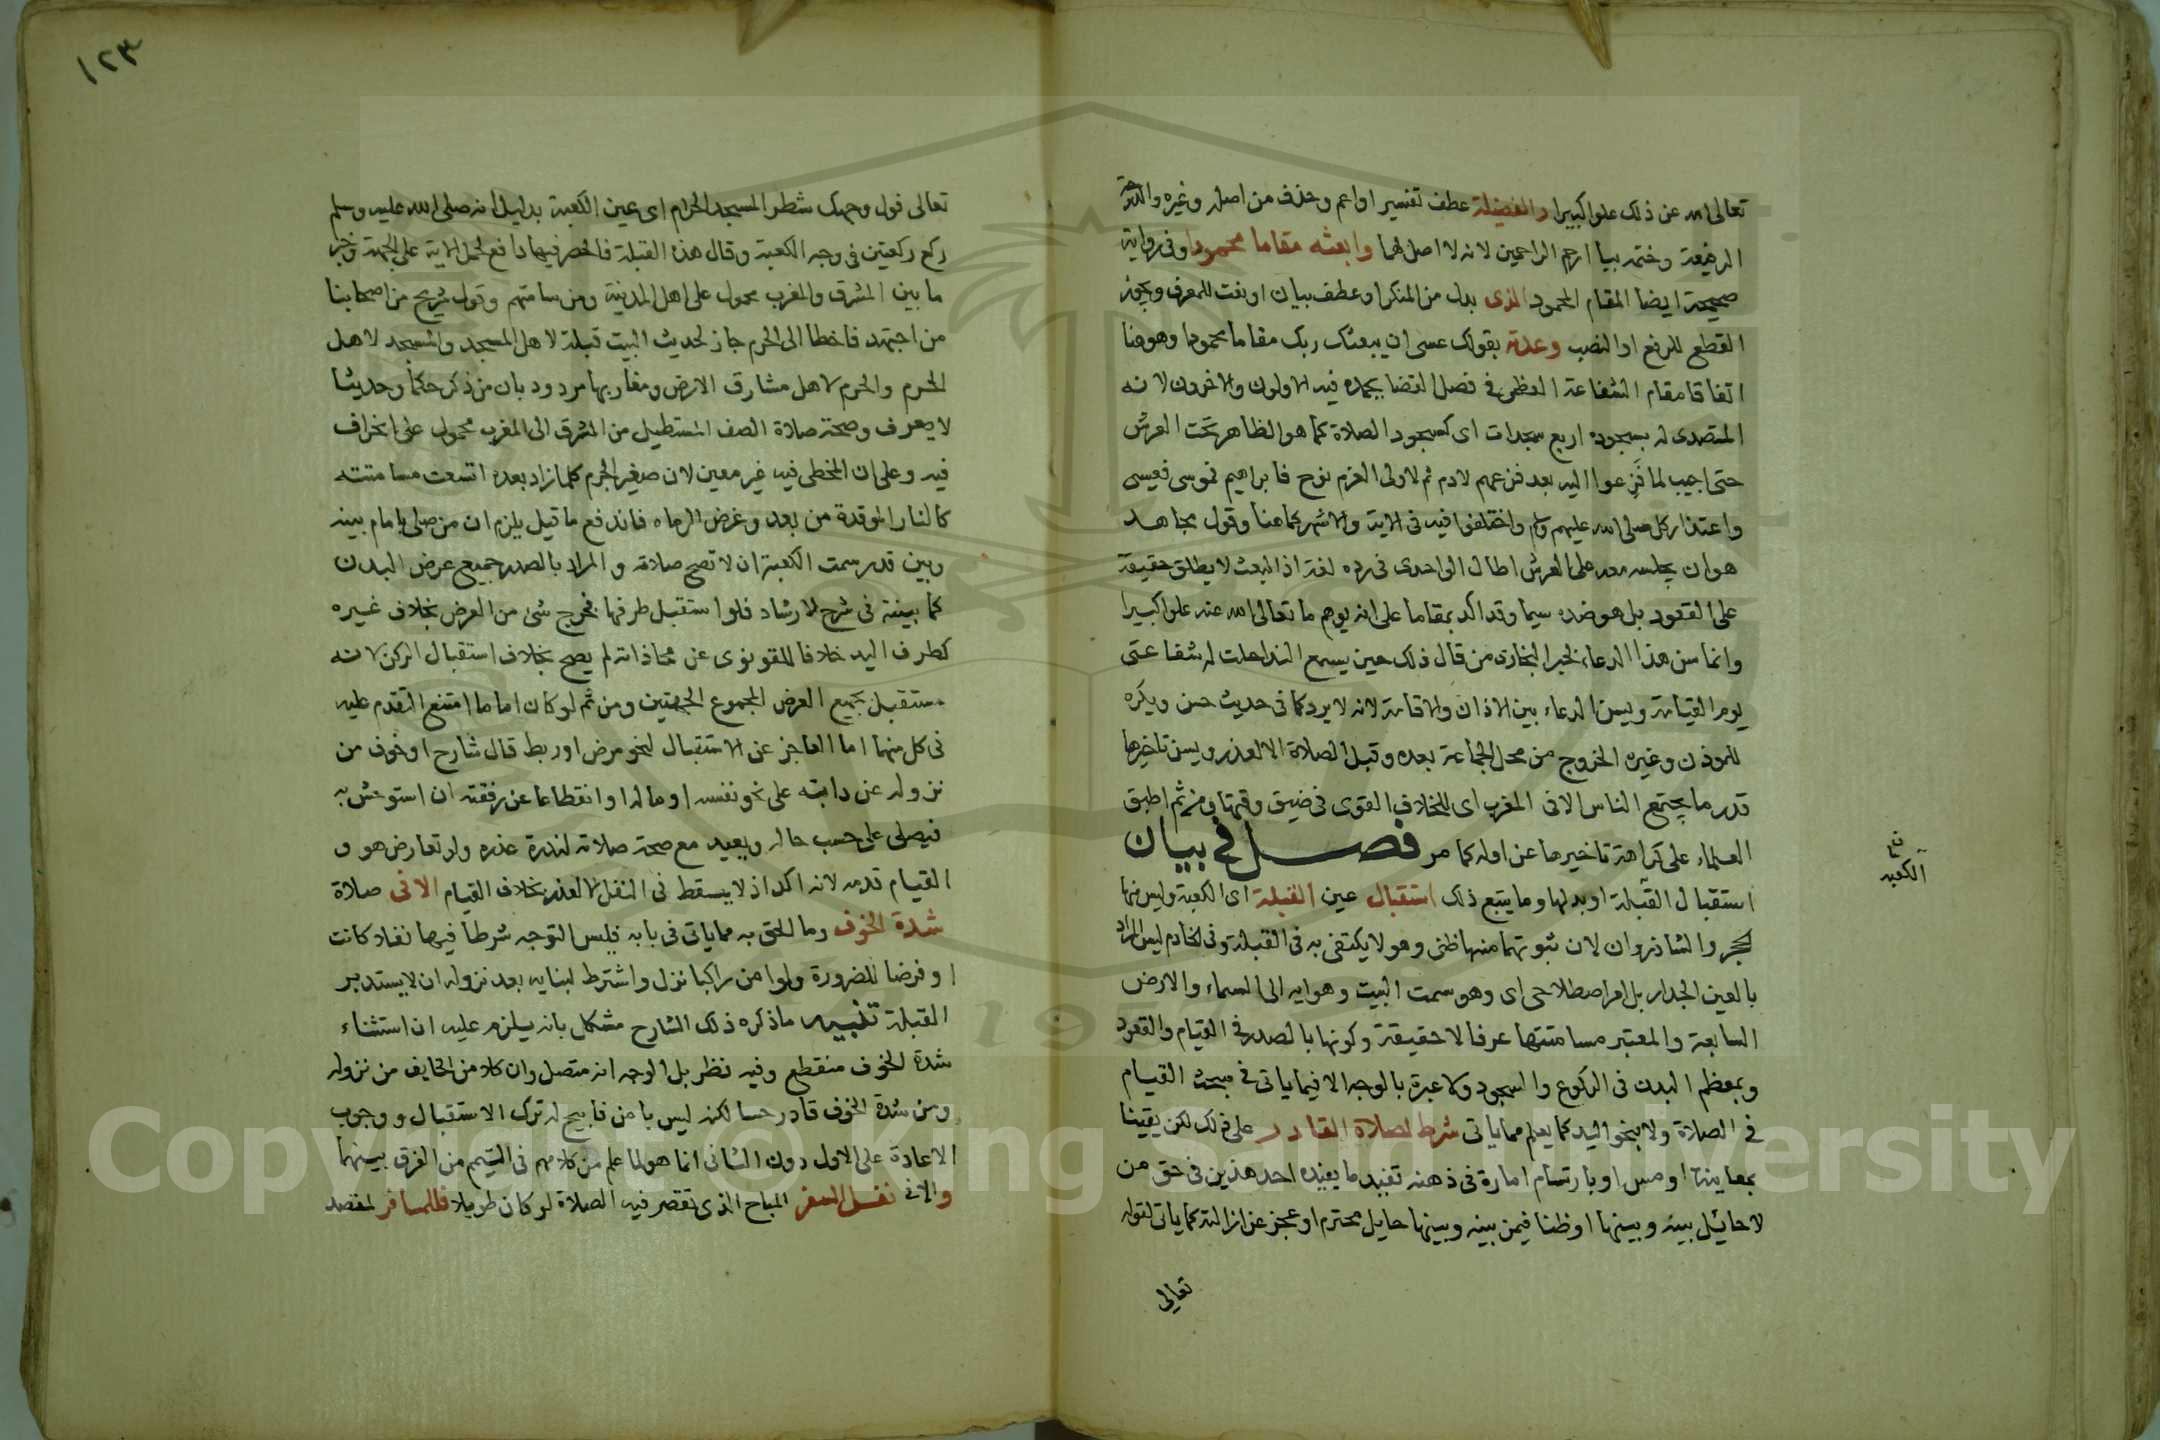 تعالى الله عن ذلك علوا كبيرا والفضيلة عطف تفسير او اعم وحذف من اصله وغيره والدرجة
الرفيعة وختمه بيا ارحم الراحمين لانه لا اصل لهما وابعثه مقاما محمودا وفى رواية
صحيحة ايضا المقام المحمود الذى بدل من المنكر او عطف بيان او نعت للمعرف ويجوز
القطع للرفع او النصب وعدته بقولك عسى ان يبعثك ربك مقاما محمودا وهو هنا
اتفاقا مقام الشفاعة العظمى فى فصل القضا يحمده فيه الاولون والاخرون لانه
المتصدى له بسجوده اربع سجدات اى كسجود الصلاة كما هو الظاهر تحت العرش
حتى اجيب لما فزعوا اليه بعد فزعهم لادم ثم لاولى العزم نوح فابراهيم فموسى فعيسى
واعتذار كل صلى الله عليهم وسلم واختلفوا فيه فى الاية والاشهر كما هنا وقول مجاهد
هو ان يجلسه معه على العرش اطال الواحدى فى رده لغة اذ البعث لا يطلق حقيقة
على القعود بل هو ضده سيما وقد اكد بمقاما على انه يوهم ما تعالى الله عنه علوا كبيرا
وانما سن هذا الدعاء لخبر البخارى من قال ذلك حين يسمع الندا حلت له شفاعتى
يوم القيامة ويسن الدعاء بين الاذان والاقامة لانه لا يرد كما فى حديث حسن ويكره
للموذن وغيره الخروج من محل الجماعة بعده وقبل الصلاة الا لعذر ويسن تاخيرها
قدر ما يجتمع الناس الا فى المغرب اى للخلاف القوى فى ضيق وقتها ومن ثم اطبق
العلماء على كراهة تاخيرها عن اوله كما مر فصل فى بيان
استقبال القبلة او بدلها وما يتبع ذلك استقبال عين القبلة اى الكعبة وليس منها
الحجر والشاذروان لان ثبوتهما منها ظنى وهو لا يكتفى به فى القبلة وفى الخادم ليس المراد
بالعين الجدار بل امر اصطلاحى اى وهو سمت البيت وهوايه الى السماء والارض
السابعة والمعتبر مسامتتها عرفا لا حقيقة وكونها بالصدر فى القيام والقعود
وبمعظم البدن فى الركوع والسجود ولا عبرة بالوجه الا فيما ياتى فى مبحث القيام
فى الصلاة ولا بنحو اليد كما يعلم مما ياتى شرط لصلاة القادر على ذلك لكن يقينا
بمعاينة او مس او بارتسام امارة فى ذهنه تفيد ما يفيده احد هذين فى حق من
لا حائل بينه وبينها او ظنا فيمن بينه وبينها حايل محترم او عجز عن ازالته كما ياتى لقوله
تعالى
الكعبه
١٢٣
تعالى فول وجهك شطر المسجد الحرام اى عين الكعبة بدليل انه صلى الله عليه وسلم
ركع ركعتين فى وجه الكعبة وقال هذه القبلة فالحصر فيها دافع لحمل الاية على الجهة وخبر
ما بين المشرق والمغرب محمول على اهل المدينة ومن سامتهم وقول شريح من اصحابنا
من اجتهد فاخطا الى الحرم جاز لحديث البيت قبلة لاهل المسجد والمسجد لاهل
الحرم والحرم لاهل مشارق الارض ومغاربها مردود بان من ذكر حكما وحديثا
لا يعرف وصحة صلاة الصف المستطيل من المشرق الى المغرب محمول على انحراف
فيه وعلى ان المخطى فيه غير معين لان صغير الجرم كلما زاد بعده اتسعت مسامتته
كالنار الموقدة من بعد وغرض الرماه فاندفع ما قيل يلزم ان من صلى بامام بينه
وبين قدر سمت الكعبة ان لا تصح صلاته والمراد بالصدر جميع عرض البدن
كما بينته فى شرح الارشاد فلو استقبل طرفها فخرج شئ من العرض بخلاف غيره
كطرف اليد خلافا للقونوى عن محاذاته لم يصح بخلاف استقبال الركن لانه
مستقبل بجميع العرض لمجموع الجهتين ومن ثم لو كان اماما امتنع التقدم عليه
فى كل منهما اما العاجز عن الاستقبال لنحو مرض او ربط قال شارح او خوف من
نزوله عن دابته على نحو نفسه او ماله او انقطاعا عن رفقته ان استوحش به
فيصلى على حسب حاله ويعيد مع صحة صلاته لندرة عذره ولو تعارض هو و
القيام قدمه لانه اكد اذ لا يسقط فى النفل الا لعذر بخلاف القيام الا فى صلاة
شدة الخوف وما الحق به مما ياتى فى بابه فليس التوجه شرطا فيها نفلا كانت
او فرضا للضرورة ولو امن راكبا نزل واشترط لبنايه بعد نزوله ان لا يستدبر
القبلة تنبيه ما ذكره ذلك الشارح مشكل بانه يلزم عليه ان استثناء
شدة الخوف منقطع وفيه نظر بل الوجه انه متصل وان كلا من الخايف من نزوله
ومن شدة الخوف قادر حسا لكنه ليس بامن فابيح له ترك الاستقبال ووجوب
الاعادة على الاول دون الثانى انما هو لما علم من كلامهم فى التيمم من الفرق بينهما
والا فى نفل السفر المباح الذى تقصر فيه الصلاة لو كان طويلا فللمسافر لمقصد
Copyright © King Saud University